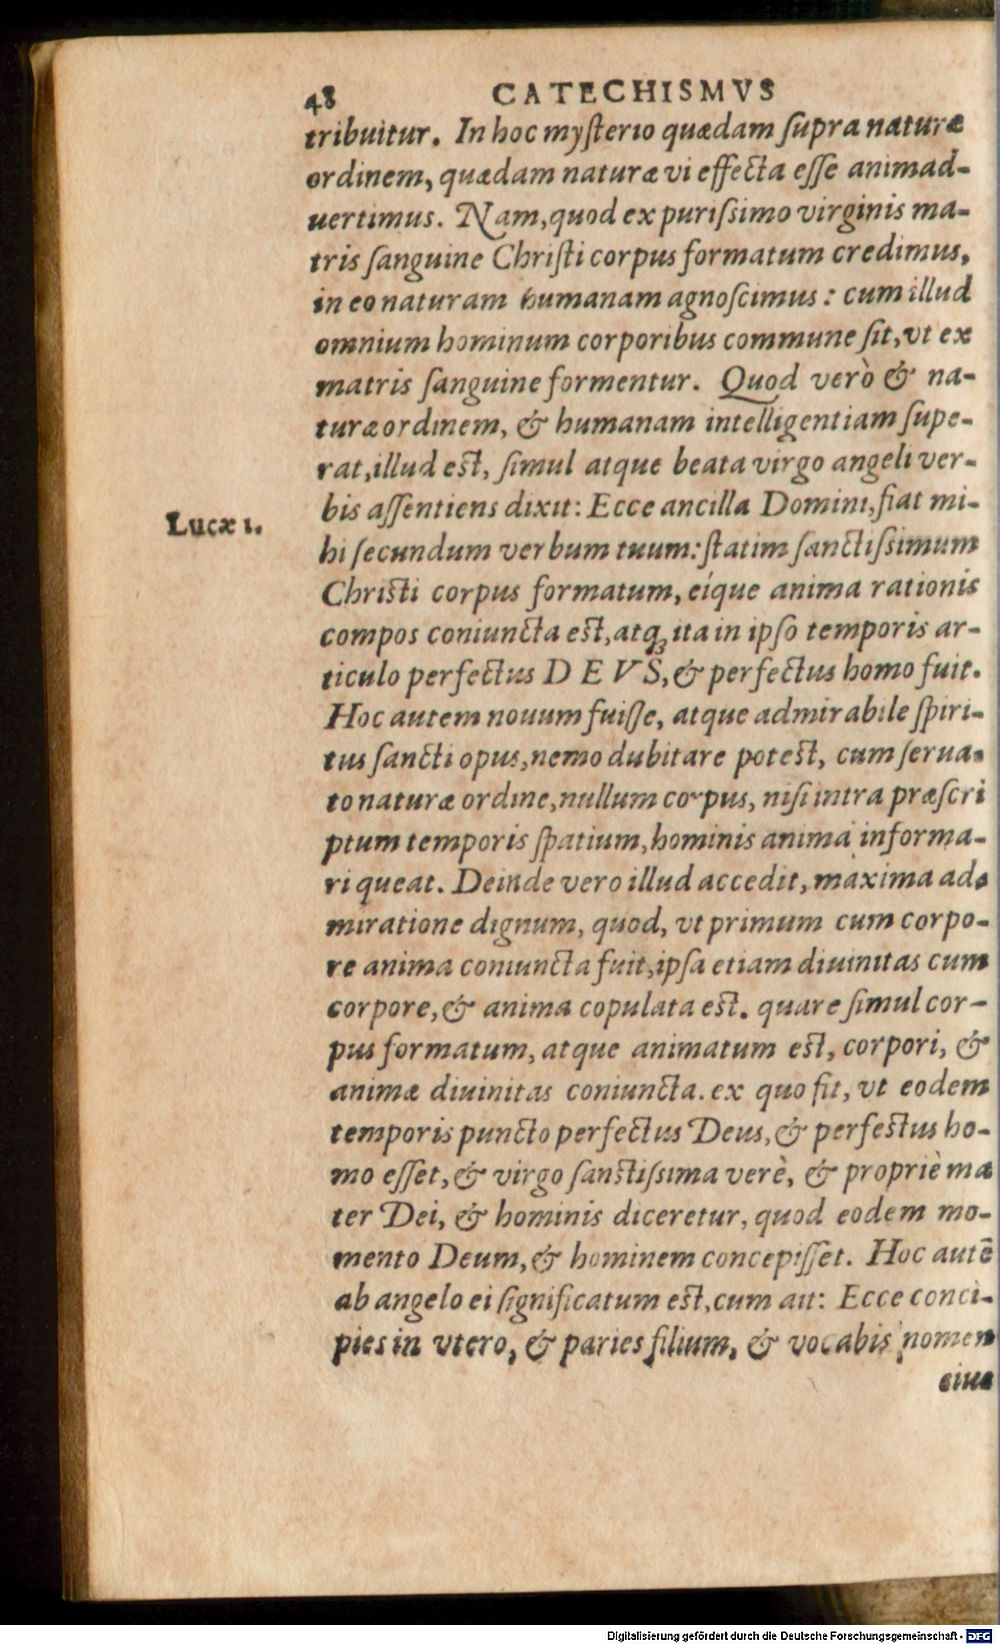 48 CATECHISMVS
tribuitur. In hoc mysterio quædam supra naturæ
ordinem, quædam naturæ vi effecta esse animad-
uertimus. Nam, quod ex purissimo virginis ma-
tris sanguine Christi corpus formatum credimus,
in eo naturam humanam agnoscimus: cum illud
omnium hominum corporibus commune sit, vt ex
matris sanguine formentur. Quod verò & na-
turæ ordinem, & humanam intelligentiam supe-
rat, illud est, simul atque beata virgo angeli ver-
Lucæ 1.
bis assentiens dixit: Ecce ancilla Domini, fiat mi-
hi secundum verbum tuum: statim sanctissimum
Christi corpus formatum, eíque anima rationis
compos coniuncta est, atq; ita in ipso temporis ar-
ticulo perfectus DEVS, & perfectus homo fuit.
Hoc autem nouum fuisse, atque admirabile spiri-
tus sancti opus, nemo dubitare potest, cum serua-
to naturæ ordine, nullum corpus, nisi intra præscri
ptum temporis spatium, hominis anima informa-
ri queat. Deinde vero illud accedit, maxima ad-
miratione dignum, quod, vt primum cum corpo-
re anima coniuncta fuit, ipsa etiam diuinitas cum
corpore, & anima copulata est. quare simul cor-
pus formatum, atque animatum est, corpori, &
animæ diuinitas coniuncta. ex quo fit, vt eodem
temporis puncto perfectus Deus, & perfectus ho-
mo esset, & virgo sanctissima verè, & propriè ma
ter Dei, & hominis diceretur, quod eodem mo-
mento Deum, & hominem concepisset. Hoc autē
ab angelo ei significatum est, cum ait: Ecce conci-
pies in vtero, & paries filium, & vocabis nomen
eius
Digitalisierung gefördert durch die Deutsche Forschungsgemeinschaft - DFG